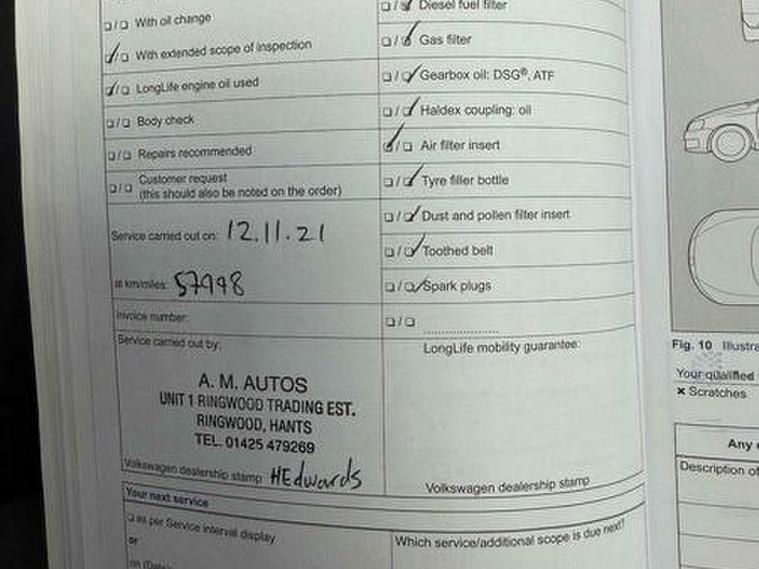 With oil change
With extended scope of inspection
LongLife engine oil used
Body check
Repairs recommended
Customer request
(this should also be noted on the order)
Service carried out on: 12.11.21
at km/miles: 57998
Invoice number:
Service carried out by:
A. M. AUTOS
UNIT 1 RINGWOOD TRADING EST.
RINGWOOD, HANTS
TEL. 01425 479269
Volkswagen dealership stamp HEdwards
Your next service
as per Service interval display
or
Diesel fuel filter
Gas filter
Gearbox oil: DSG®, ATF
Haldex coupling: oil
Air filter insert
Tyre filler bottle
Dust and pollen filter insert
Toothed belt
Spark plugs
LongLife mobility guarantee:
Volkswagen dealership stamp
Which service/additional scope is due next?
Fig. 10 Illustra
Your qualified
× Scratches
Any
Description of